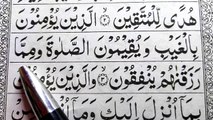 هُدًى لِّلْمُتَّقِيْنَ ۙ﴿۲﴾ الَّذِيْنَ يُؤْمِنُوْنَ
بِالْغَيْبِ وَيُقِيْمُوْنَ الصَّلٰوةَ وَمِمَّا
رَزَقْنٰهُمْ يُنْفِقُوْنَ ۙ﴿۳﴾ وَالَّذِيْنَ يُؤْمِنُوْنَ
بِمَآ اُنْزِلَ اِلَيْكَ وَمَآ